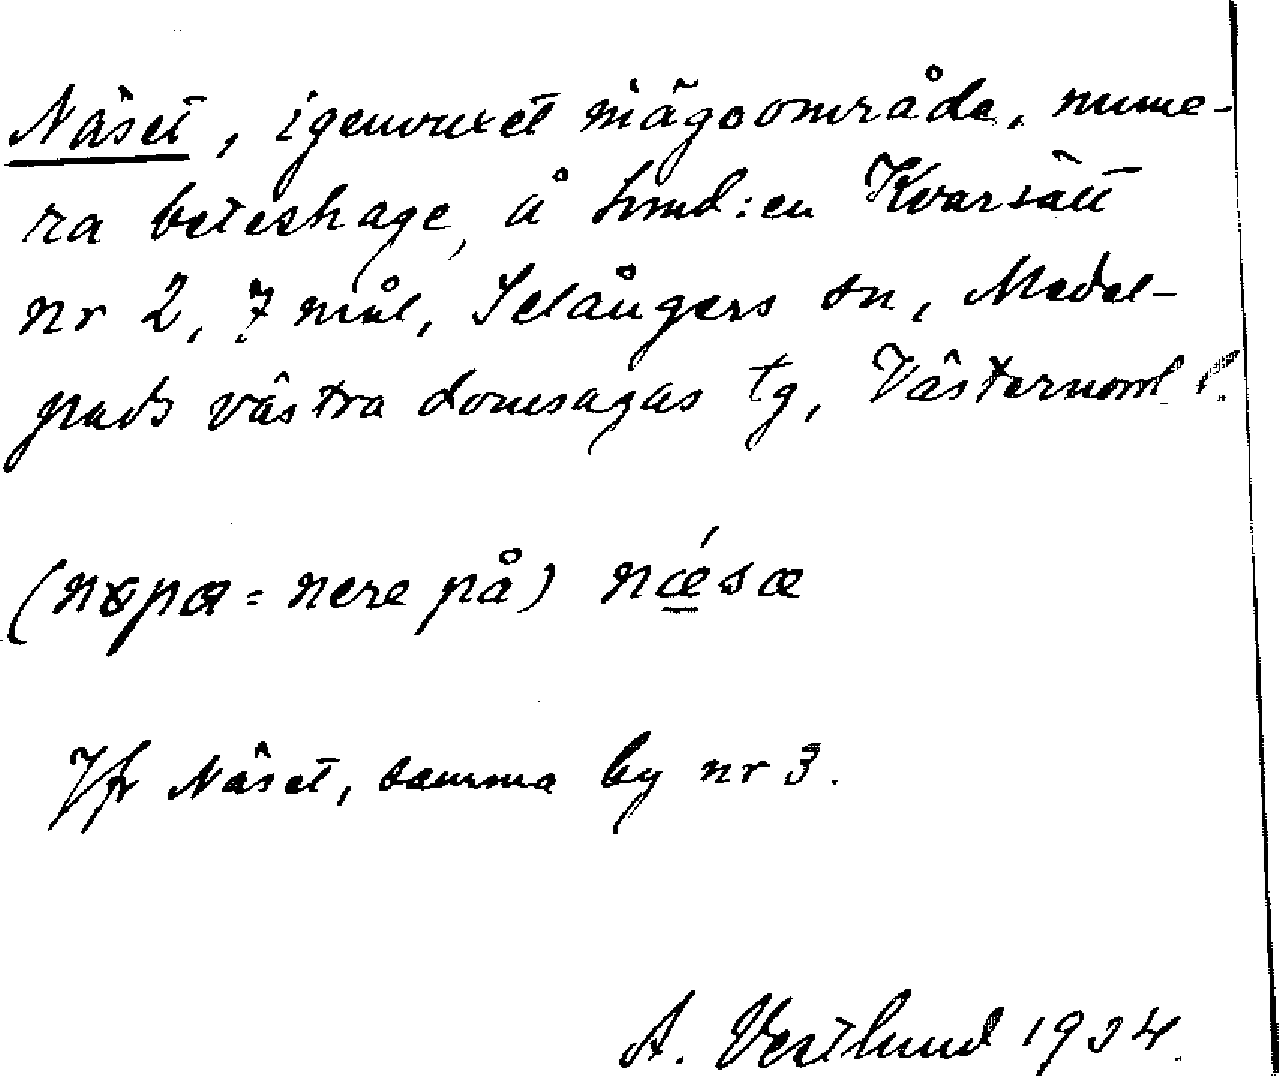 Näset, igenvuxet inägoområde, nume-
ra beteshage, å hmd:en Kvarsätt
nr 2, 7 mål, Selångers sn, Medel-
pads västra domsagas tg, Västernorrl l.
= nere på) nǽsæ
Jfr Näset, samma by nr 3.
A. Vestlund 1934.